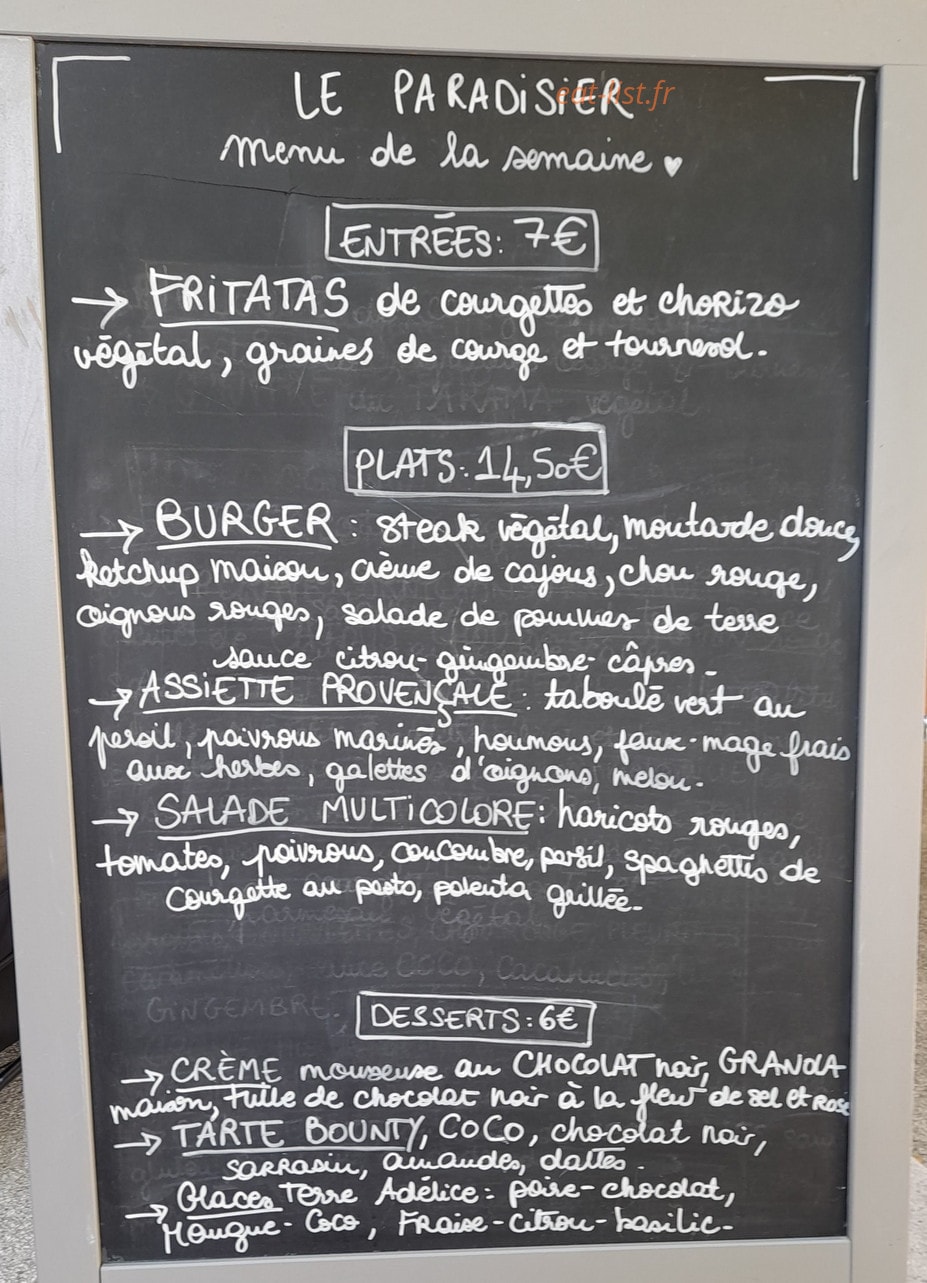 LE PARADISIER
eat-list.fr
menu de la semaine ♥
ENTRÉES: 7€
→ FRITATAS de courgettes et chorizo
végétal, graines de courge et tournesol.
du TARAMA végétal
PLATS: 14,50€
→ BURGER: steak végétal, moutarde douce,
ketchup maison, crème de cajous, chou rouge,
oignons rouges, salade de pommes de terre
sauce citron-gingembre-câpres.
→ ASSIETTE PROVENÇALE: taboulé vert au
persil, poivrons marinés, houmous, faux-mage frais
aux herbes, galettes d'oignons, melon.
→ SALADE MULTICOLORE: haricots rouges,
tomates, poivrons, concombre, persil, spaghettis de
courgette au pesto, polenta grillée.
végétal
COCO,
GINGEMBRE.
DESSERTS: 6€
→ CRÈME mousseuse au CHOCOLAT noir, GRANOLA
maison, tuile de chocolat noir à la fleur de sel et rose
→ TARTE BOUNTY, COCO, chocolat noir,
sarrasin, amandes, dattes.
→ Glaces Terre Adélice: poire-chocolat,
Mangue-Coco, Fraise-citron-basilic-